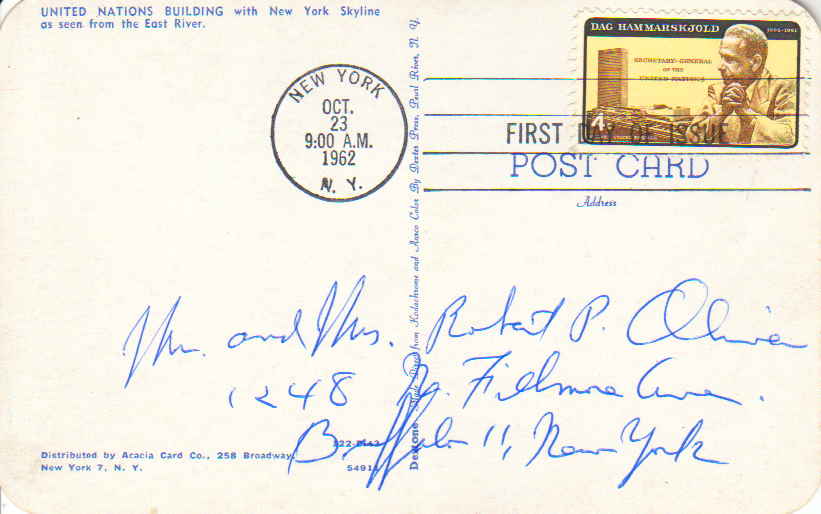 UNITED NATIONS BUILDING with New York Skyline
as seen from the East River.
DAG HAMMARSKJOLD
1905-1961
SECRETARY-GENERAL
OF THE
UNITED NATIONS
4
NEW YORK
OCT.
23
9:00 A.M.
1962
N. Y.
FIRST DAY OF ISSUE
POST CARD
Address
Mr. and Mrs. Robert P. Oliver
1248 Fillmore Ave.
Buffalo 11, New York
Distributed by Acacia Card Co., 258 Broadway,
New York 7, N. Y.
Dextone Made Direct from Kodachrome and Ansco Color By Dexter Press, Pearl River, N. Y.